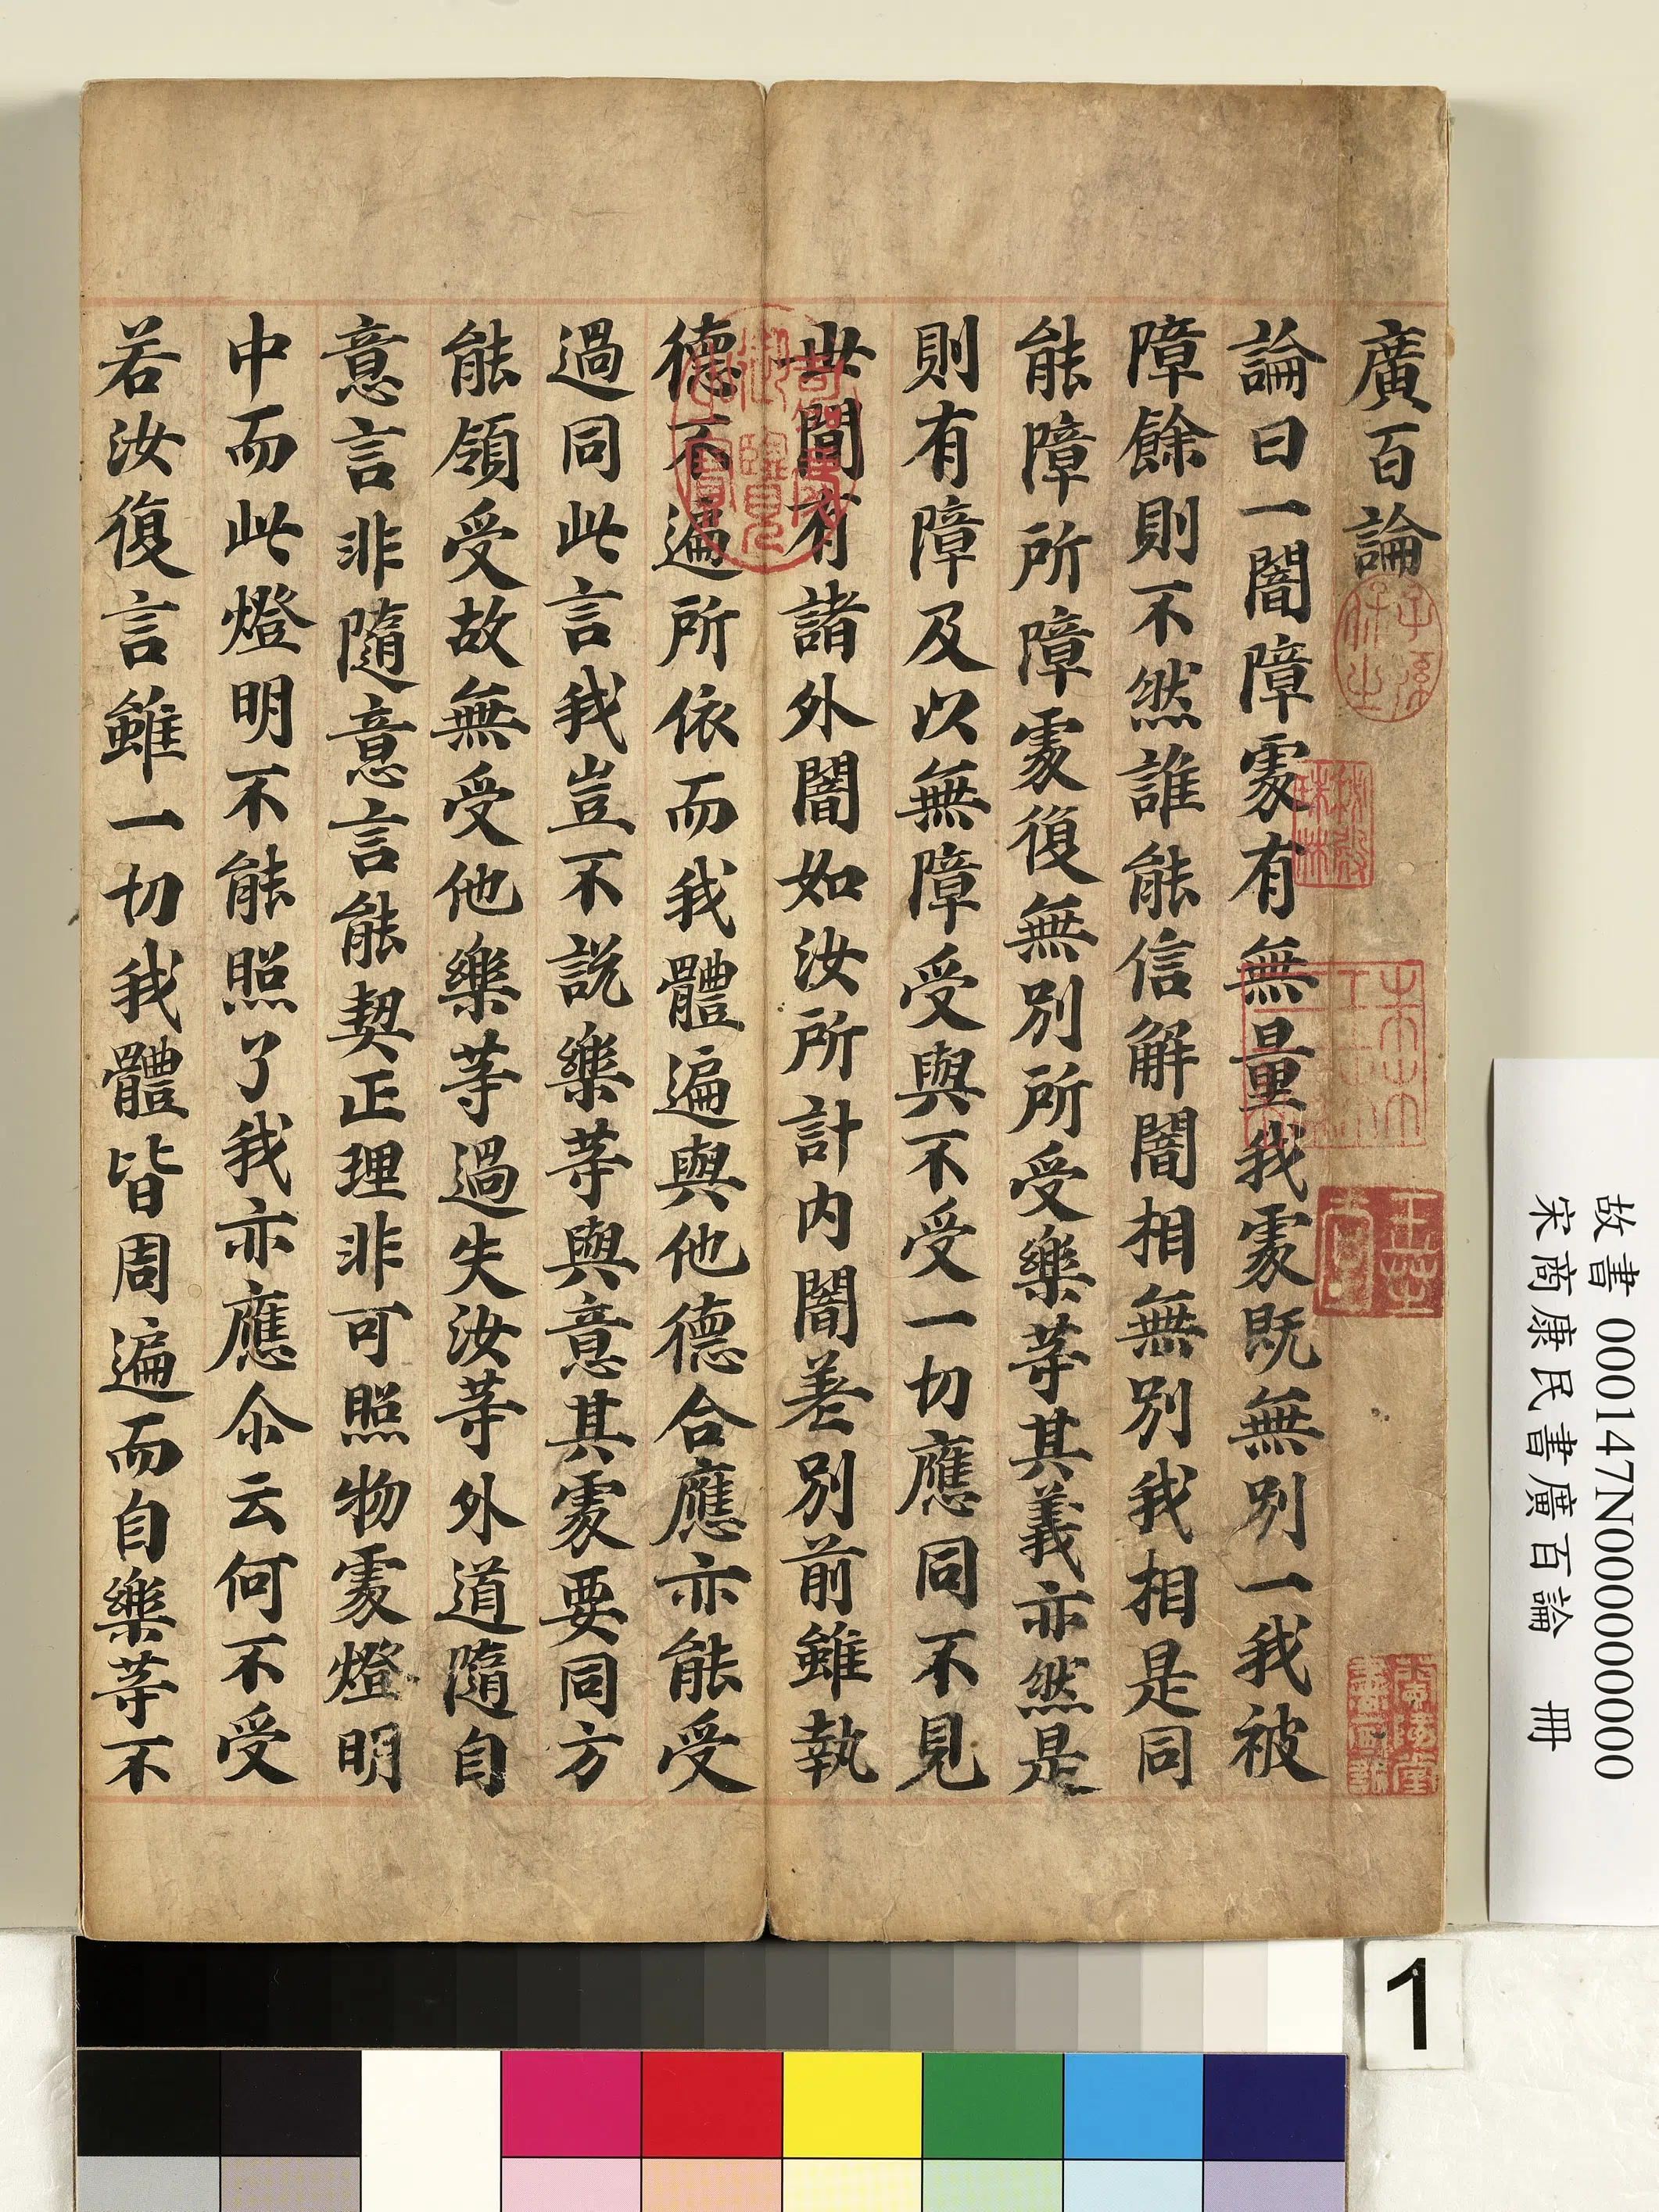 廣百論
論曰一闇障處有無量我處既無別一我被
障餘則不然誰能信解闇相無別我相是同
能障所障處復無別所受樂等其義亦然是
則有障及以無障受與不受一切應同不見
世間有諸外闇如汝所計内闇差別前雖執
德不遍所依而我體遍與他德合應亦能受
過同此言我豈不説樂等與意其處要同方
能領受故無受他樂等過失汝等外道隨自
意言非隨意言能契正理非可照物處燈明
中而此燈明不能照了我亦應尒云何不受
若汝復言雖一切我體皆周遍而自樂等不
乾隆御覽之寶
子孫永之
秘殿珠林
故書 000147N000000000
宋商康民書廣百論 冊
1